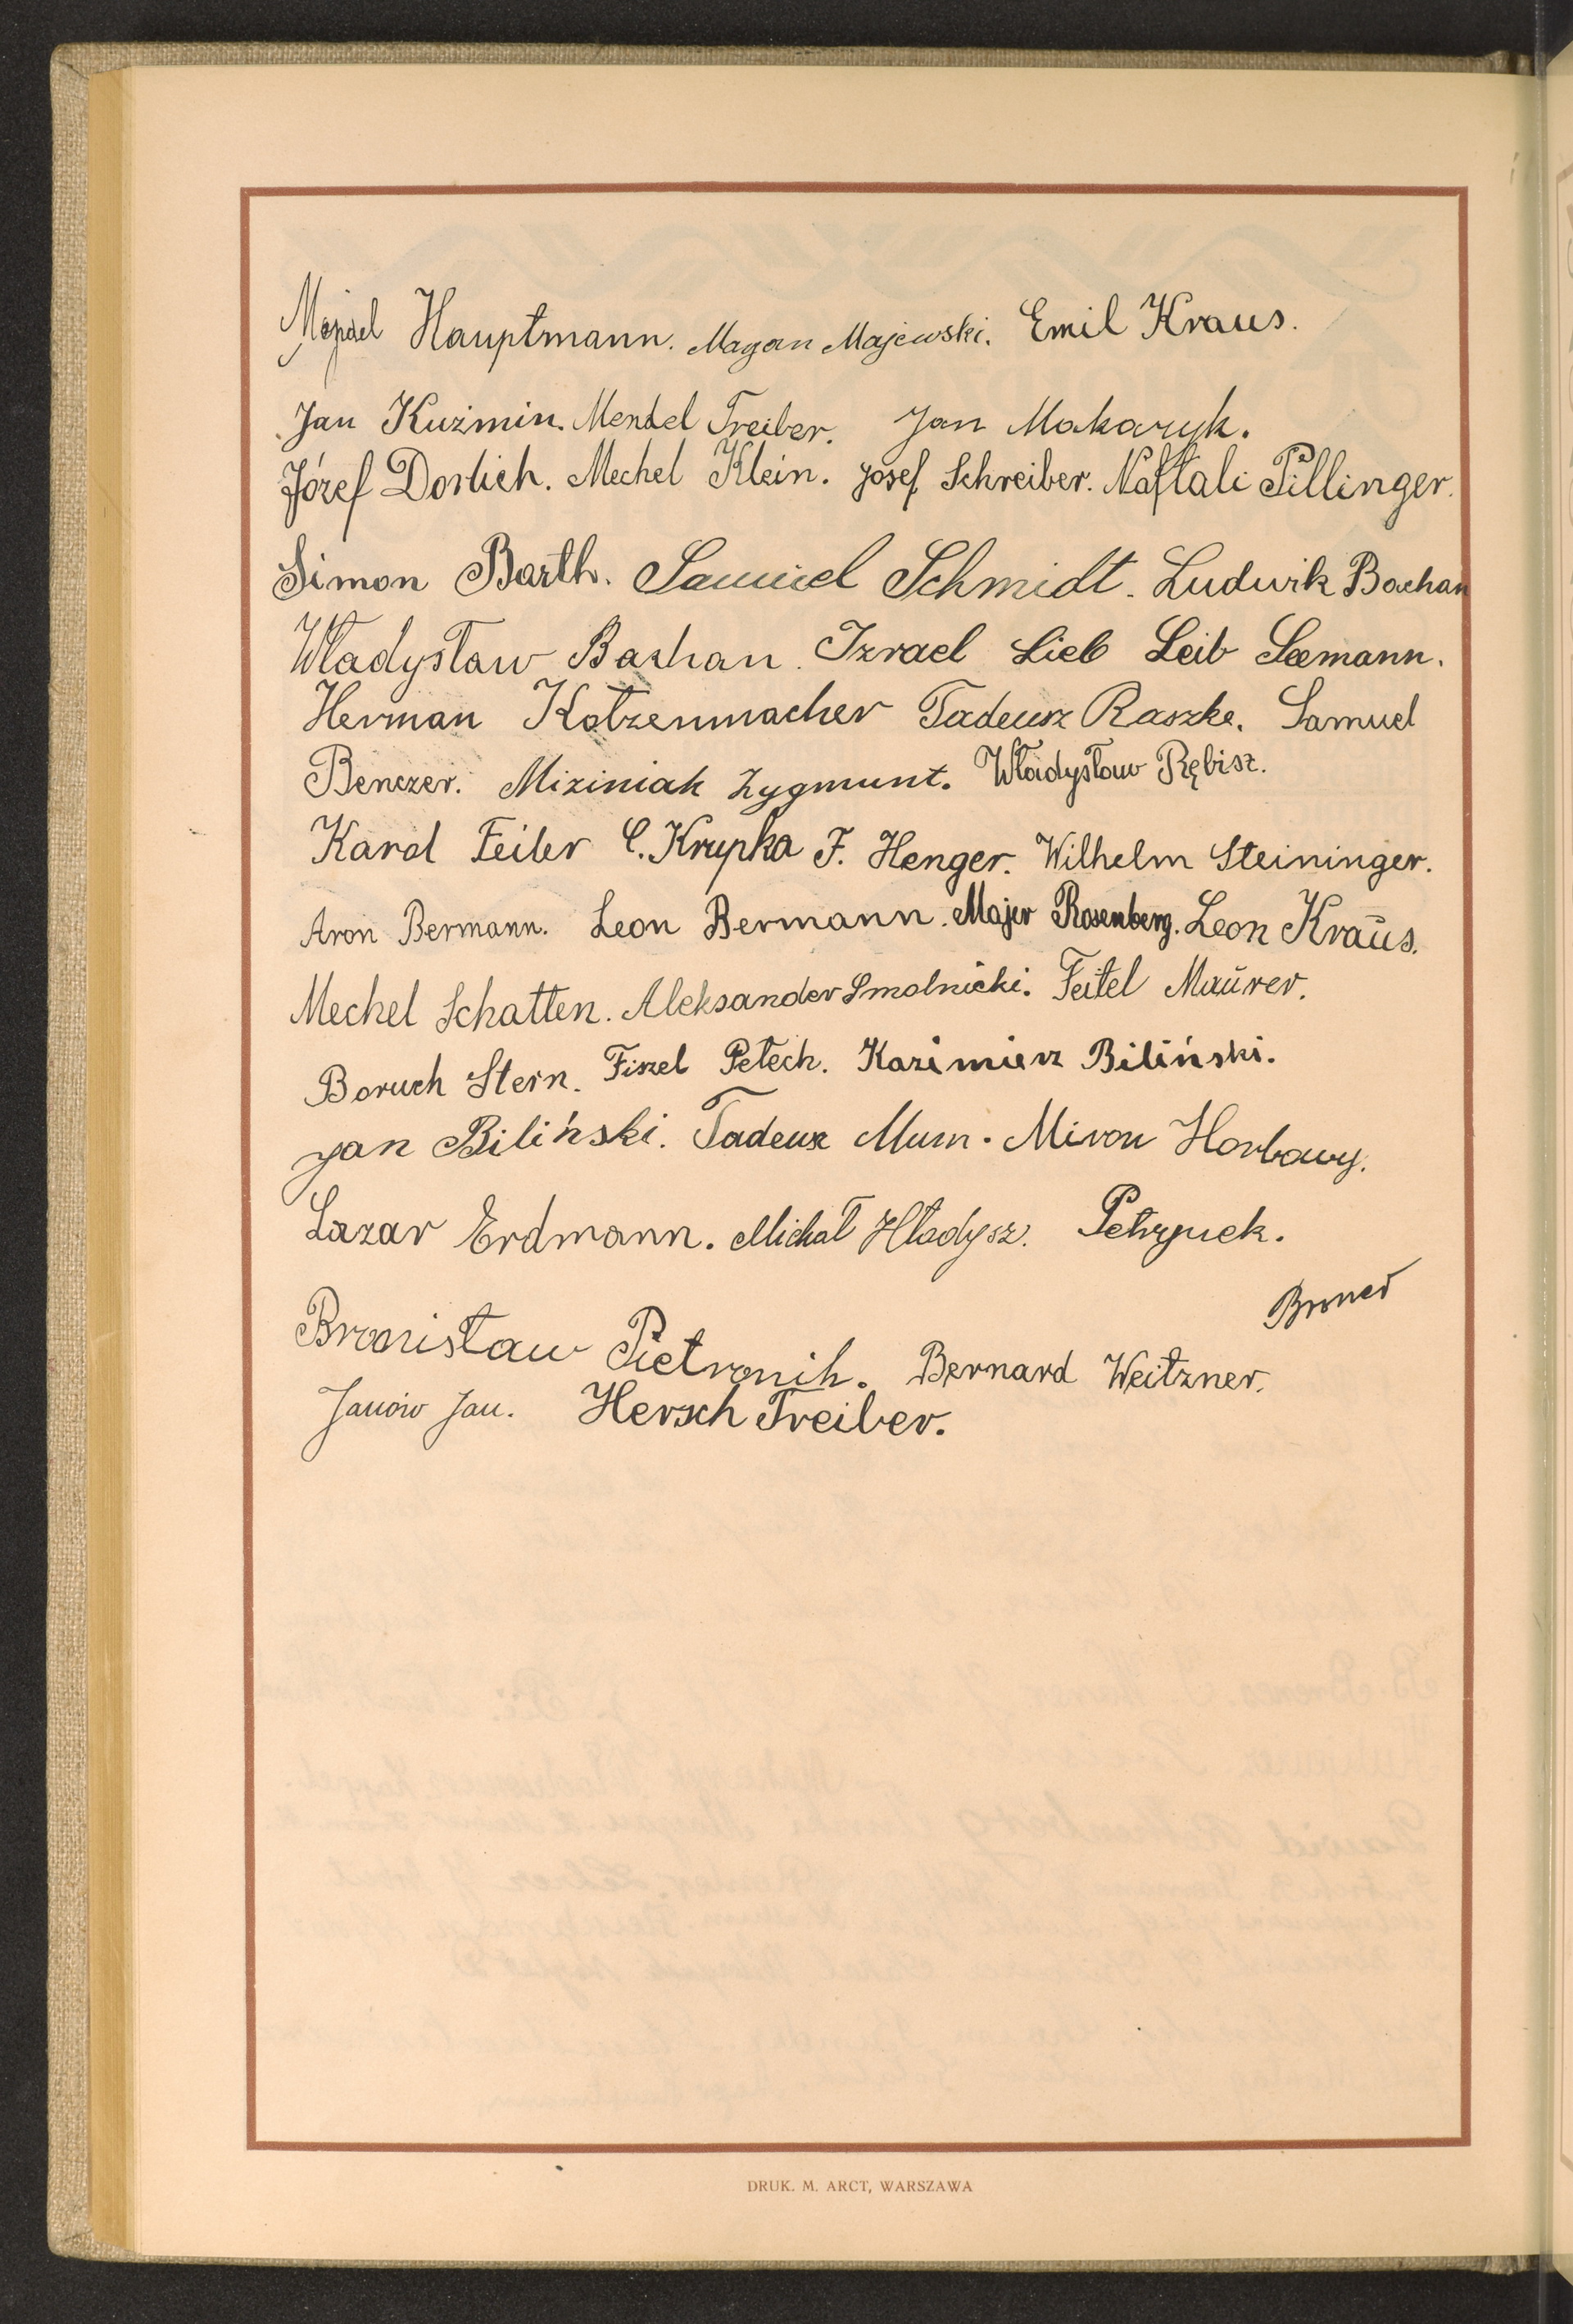 Hauptmann. Magan Majewski. Emil Kraus.
Jan Kuźmin. Mendel Treiber. Jan Makaryk.
Józef Dorlich. Mechel Klein. Josef Schreiber. Naftali Pillinger.
Simon Barth. Samuel Schmidt. Ludwik Bachan
Władysław Bachan. Izrael Lieb Leib Seemann.
Herman Katzenmacher Tadeusz Raszke. Samuel
Benczer. Miziniak Zygmunt. Władysław Rębisz.
Karol Feiler C. Krupka F. Henger. Wilhelm Steininger.
Aron Bermann. Leon Bermann. Majer Rosenberg. Leon Kraus.
Mechel Schatten. Aleksander Smolnicki. Feitel Maurer.
Boruch Stern. Fiszel Petech. Kazimierz Biliński.
Jan Biliński. Tadeusz Mum. Miron Horbowy.
Lazar Erdmann. Michał Hładysz.
Bronisław Pietronik. Bernard Weitzner.
Janów Jan. Hersch Treiber.
DRUK. M. ARCT, WARSZAWA